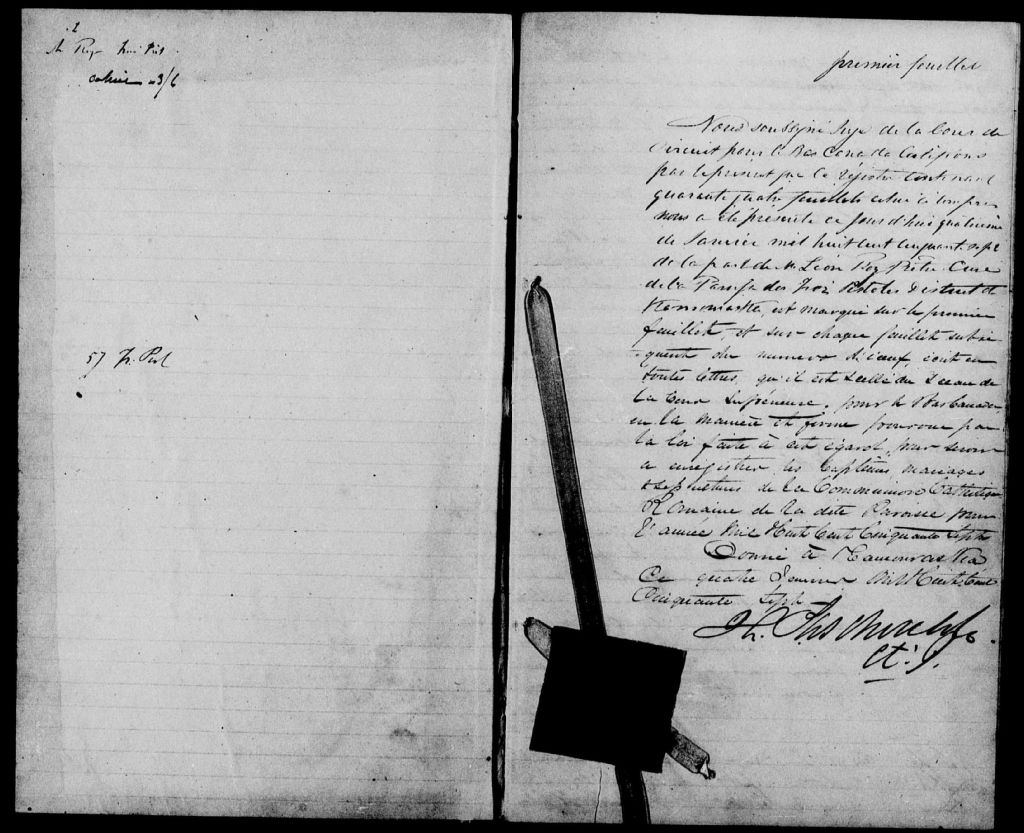 2
Mr Roy
cahier 3/6
57 Tr. Pist
premier feuillet
Nous soussigné Juge de la Cour de
Circuit pour le Bas Canada Certifions
par le present que ce régistre contenant
quarante quatre feuillets celui ci compris
nous a été présenté ce jour d'hui quatrieme
de Janvier mil huit cent cinquant sept
de la part de Mr Léon Roy Prêtre Curé
de la Paroisse des Trois Pistoles District de
Kamouraska, est marqué sur le premier
feuillet, et sur chaque feuillet subsé
quent du numero d'iceux, écrit en
toutes lettres, qu'il est scellé du Sceau de
la Cour Supérieure, pour le Bas Canada
en la manière et forme pourvue par
la loi faite à cet égard, pour servir
a enregistrer les baptêmes mariages
& sépultures de la Communion Catholique
Romaine de la dite Paroisse pour
l'année Mil Huit Cent Cinquante Sept
Donné à Kamouraska
Ce quatre Janvier Mil Huit Cent
Cinquante Sept